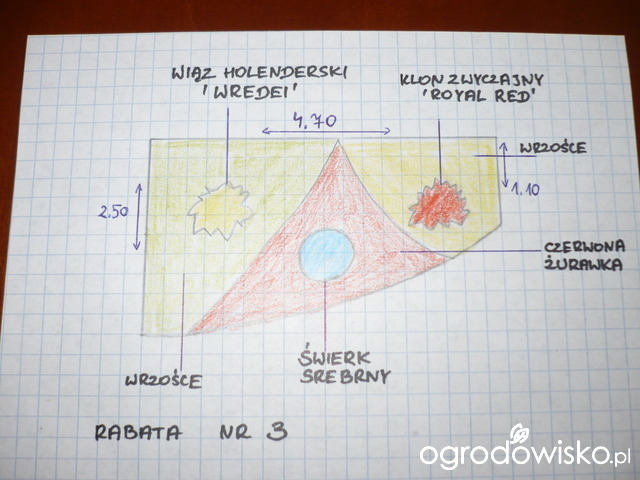 WIĄZ HOLENDERSKI
'WREDEI'
KLON ZWYCZAJNY
'ROYAL RED'
4.70
WRZOŚCE
1.10
2.50
CZERWONA
ŻURAWKA
ŚWIERK
SREBRNY
WRZOŚCE
RABATA NR 3
ogrodowisko.pl